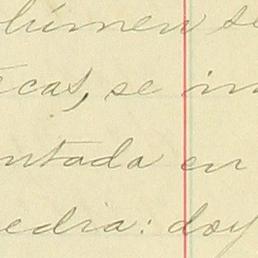 lúmen se
écas, se in
ntada en
edia: doy